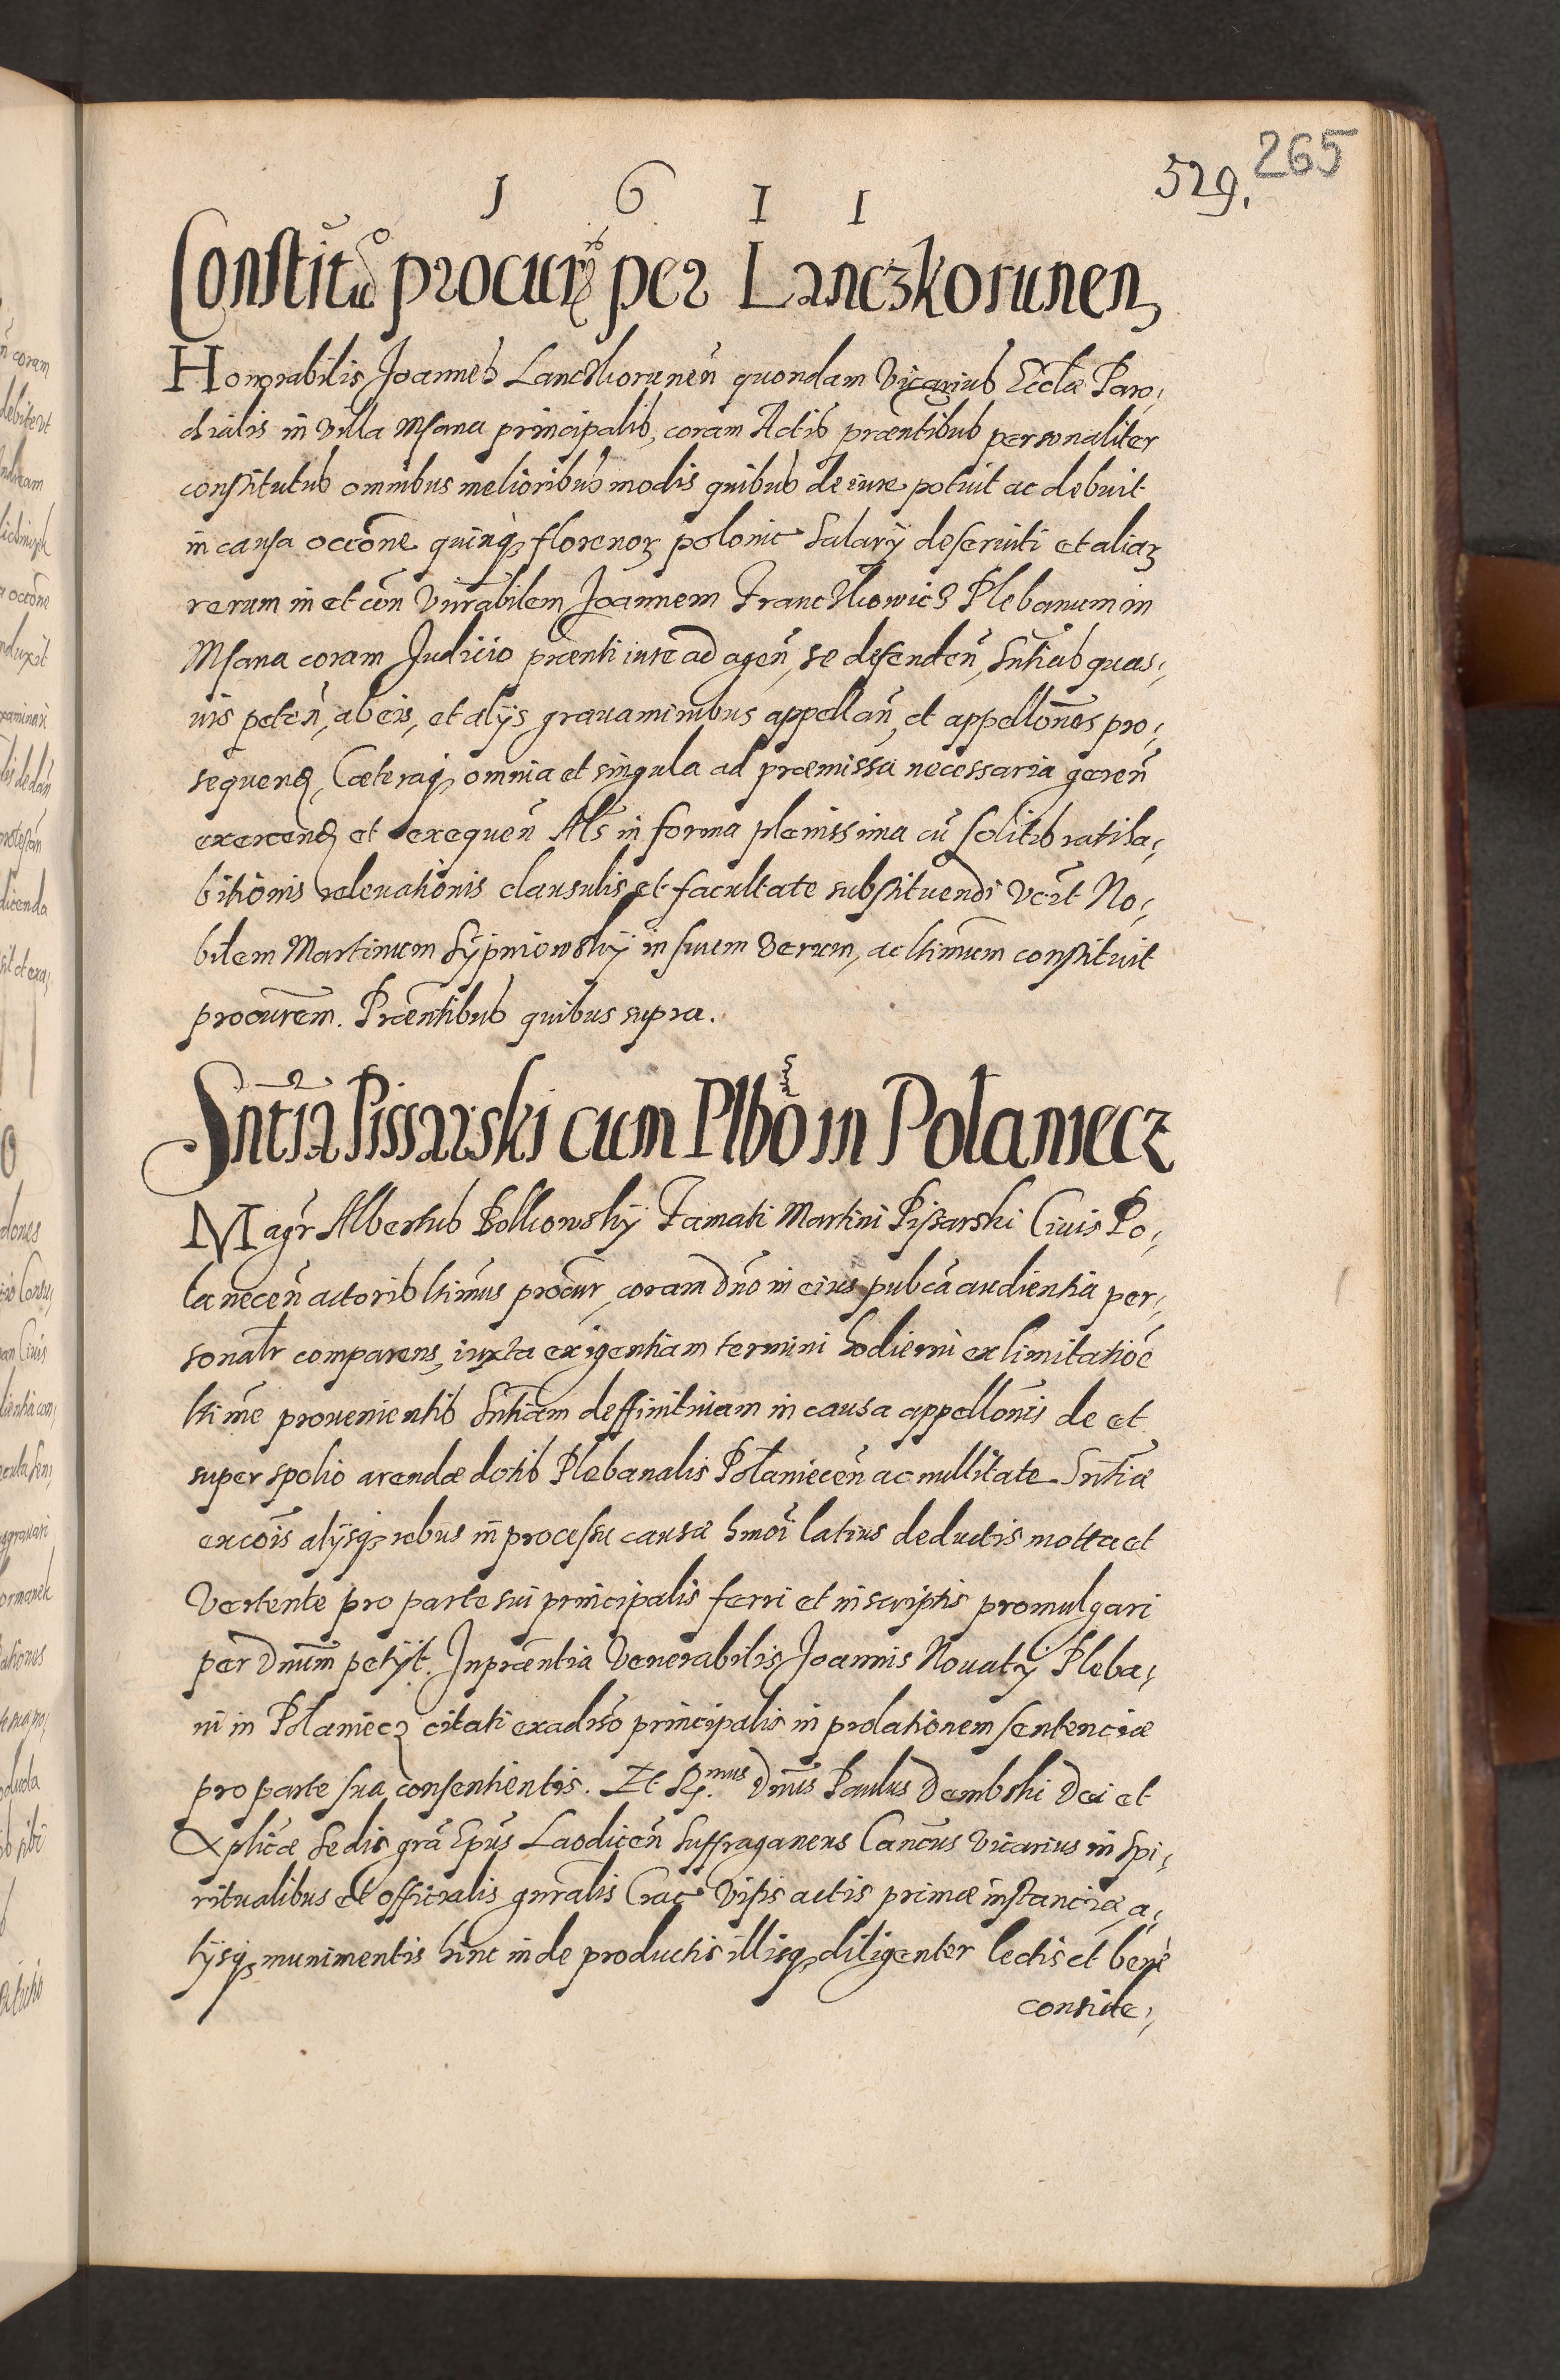 265
529.
1 6 1 1
Constitutio procuris per Lanczkorunen
Honorabilis Joannes Lanczkorunen̄ quondam Vicarius Eccl̄æ Paro¸
chialis in Villa Msana principalis, coram Actis præn̄tibus personaliter
constitutus omnibus melioribus modis quibus de iure potuit ac debuit
in causa occōne quinq; florenoꝝ polonic Salarÿ deseruiti et aliaꝝ
rerum in et cōn Vnr̄abilem Joannem Franczkowicz Plebanum in
Msana coram Judicio præn̄ti iure ad agen̄, se defenden̄, Sn̄tias quas¸
vis peten̄, ab eis, et alÿs grauaminibus appellan̄, et appellōnes pro¸
sequend, Cæteraq; omnia et singula ad præmissa necessaria geren̄
exercend et exequen̄ Als̄ in forma plenissima cū solitis ratiha¸
bitionis releuationis clausulis et facultate substituendi Vcr̄t No¸
bilem Martinum Sÿpniowskÿ in suum verum, ac ltimum constituit
procurēm. Præn̄tibus quibus supra.
Sn̄tia Pissarski cum Plbō in Polaniecz
Magr̄ Albertus Bolkowskÿ Famati Martini Pisarski Ciuis Po¸
lanecen̄ actoris ltim̄us procur̄, coram Dn̄o in eius pubca audientia per¸
sonalr̄ comparens, iuxta exigentiam termini hodierni ex limitatiōe
ltime prouenientis Sn̄tiam deffinitiuam in causa appellōnis de et
super spolio arendæ dotis Plebanalis Polaniecen̄ ac nullitate Sn̄tiæ
excōis alÿsq; rebus in processu causæ hmōi latius deductis motta et
Vertente pro parte sui principalis ferri et in scriptis promulgari
per Dnum̄ petÿt. In præn̄tia Venerabilis Joannis Nouatÿ Pleba¸
ni in Polaniecz citati ex aduso principalis in prolationem sentenciæ
pro parte sua consentientis. Et R.mus Dn̄us Paulus Dembski Dei et
Aplicæ Sedis grā Epūs Laodicen̄ Suffraganeus Cancūs Vicarius in Spi¸
ritualibus et officialis gnr̄alis Crac Visis actis primæ instanciæ, a¸
lÿsq; munimentis hinc inde productis illisq; diligenter lectis et bene
conside¸